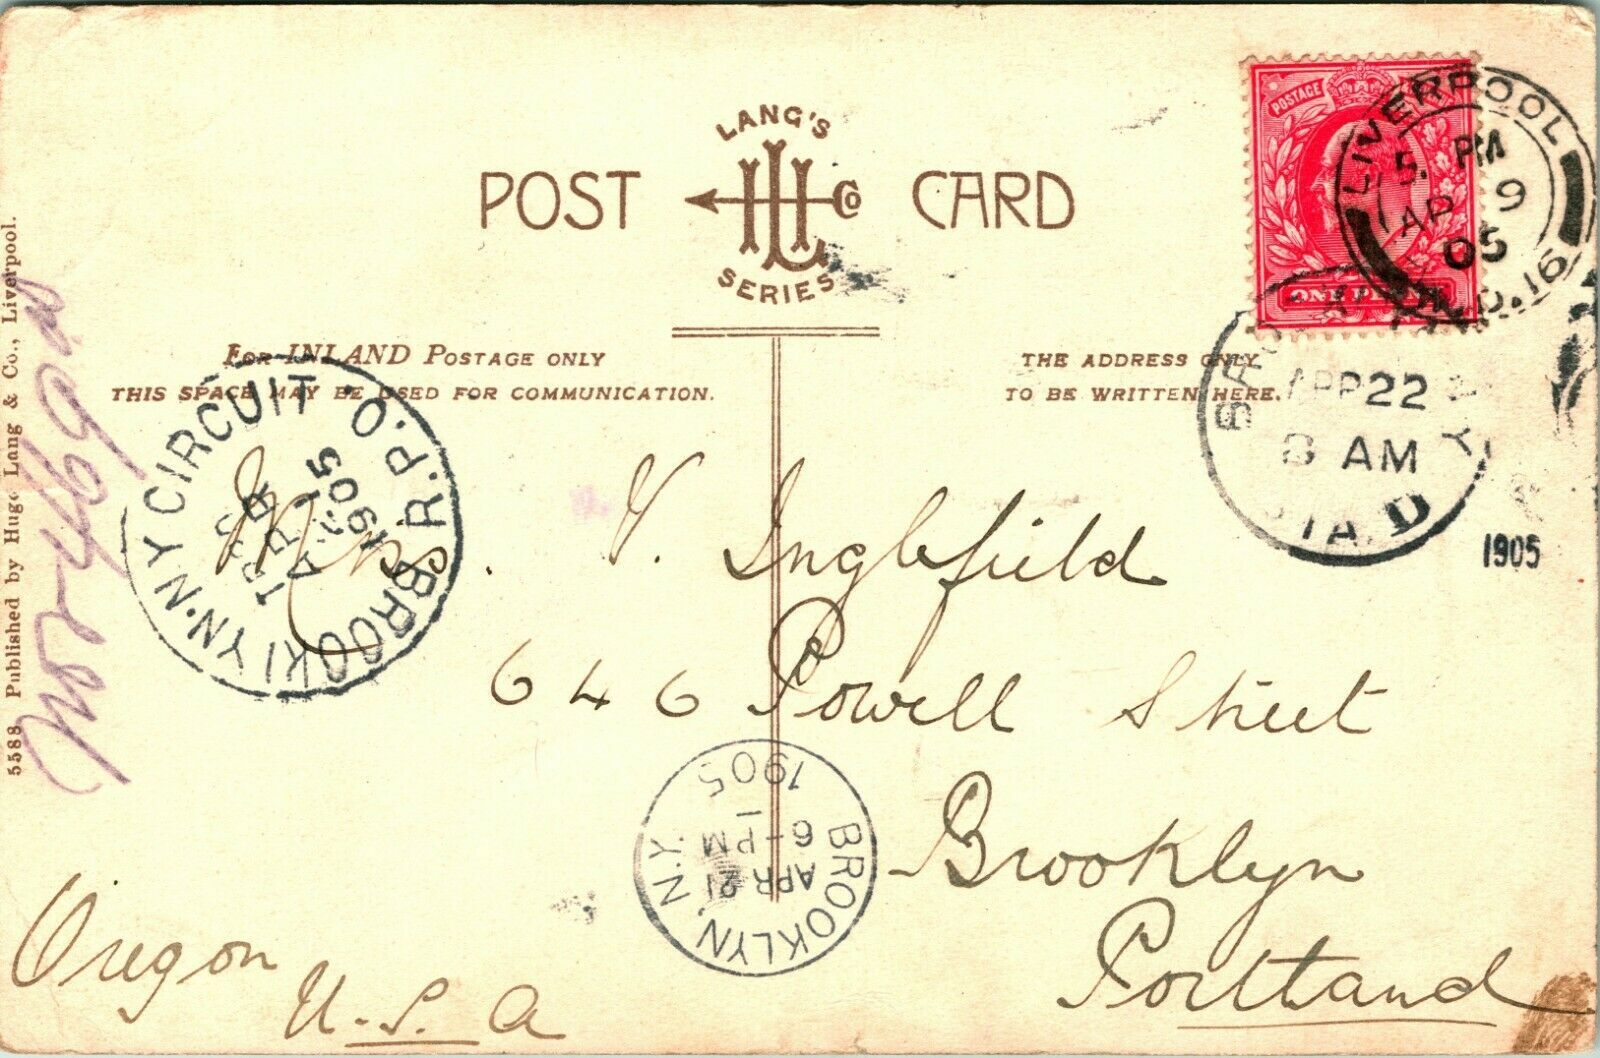 LANG'S
POST CARD
Co
SERIES
For INLAND Postage only
THIS SPACE MAY BE USED FOR COMMUNICATION.
THE ADDRESS ONLY
TO BE WRITTEN HERE.
POSTAGE
ONE PENNY
LIVERPOOL
5. PM
AP 9
05
16
APR 22
8 AM
STA. D
1905
BROOKLYN.N.Y CIRCUIT.
BROOKLYN R.P.O.
APR
1905
Mrs. V. Inglefield
646 Powell Street
Brooklyn
Portland
Oregon
U.S.A
BROOKLYN, N.Y.
APR 21
6-PM
1905
5588 Published by Hugo Lang & Co., Liverpool.